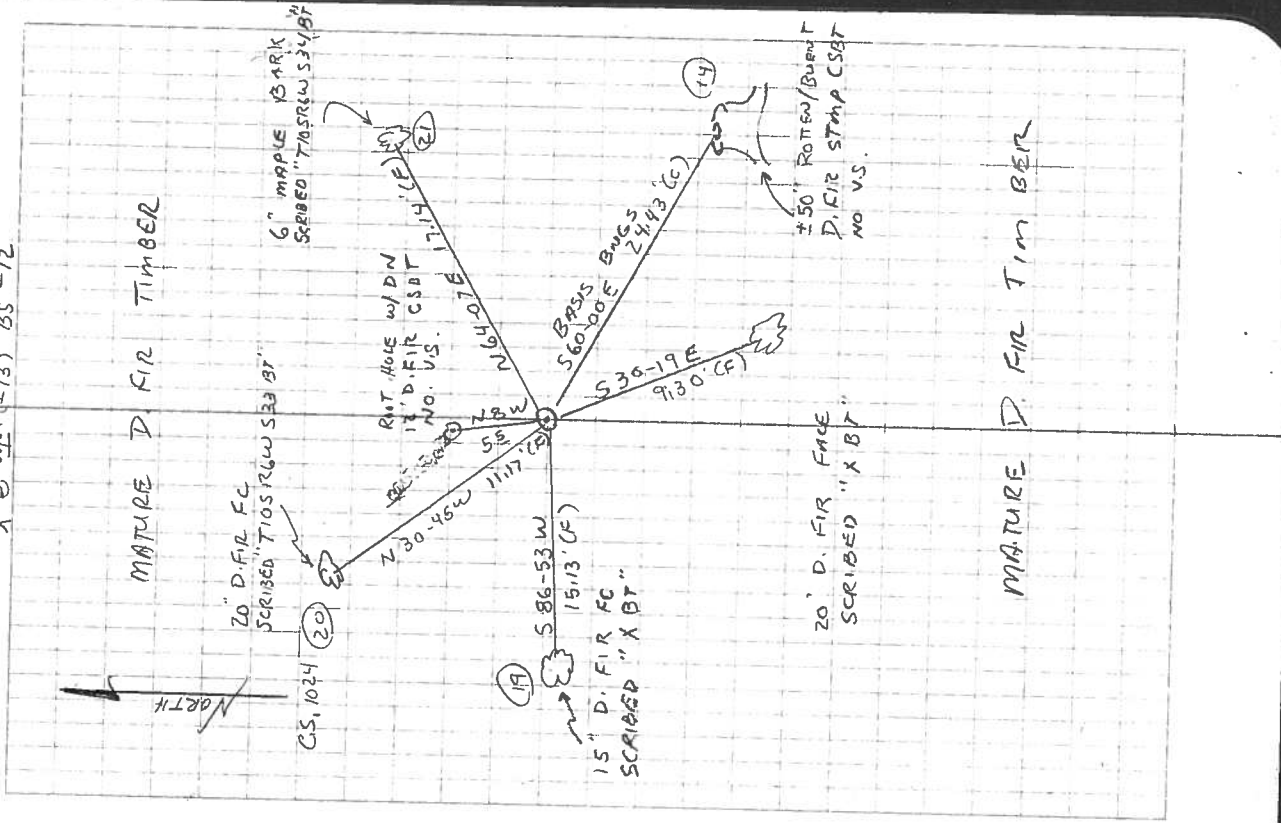 MATURE D. FIR TIMBER
6" MAPLE BARK
SCRIBED "T10SR6W S34/BT"
20" D. FIR FC
SCRIBED "T10S R6W S33 BT"
CS. 1024
20
21
NORTH
ROOT HOLE W/DN
12" D. FIR CSBT
NO. V.S.
N 64-07 E
17.14' (F)
N 8 W
5.5
N 30-45 W
11.17' (F)
BASIS BNGS
S 60-00 E
24.43' (C)
14
±50" ROTTEN/BURNT
D. FIR STMP CSBT
NO V.S.
S 86-53 W
15.13' (F)
19
15" D. FIR FC
SCRIBED "X BT"
S 30-19 E
9.30' (F)
20" D. FIR FACE
SCRIBED "X BT"
MATURE D. FIR TIMBER